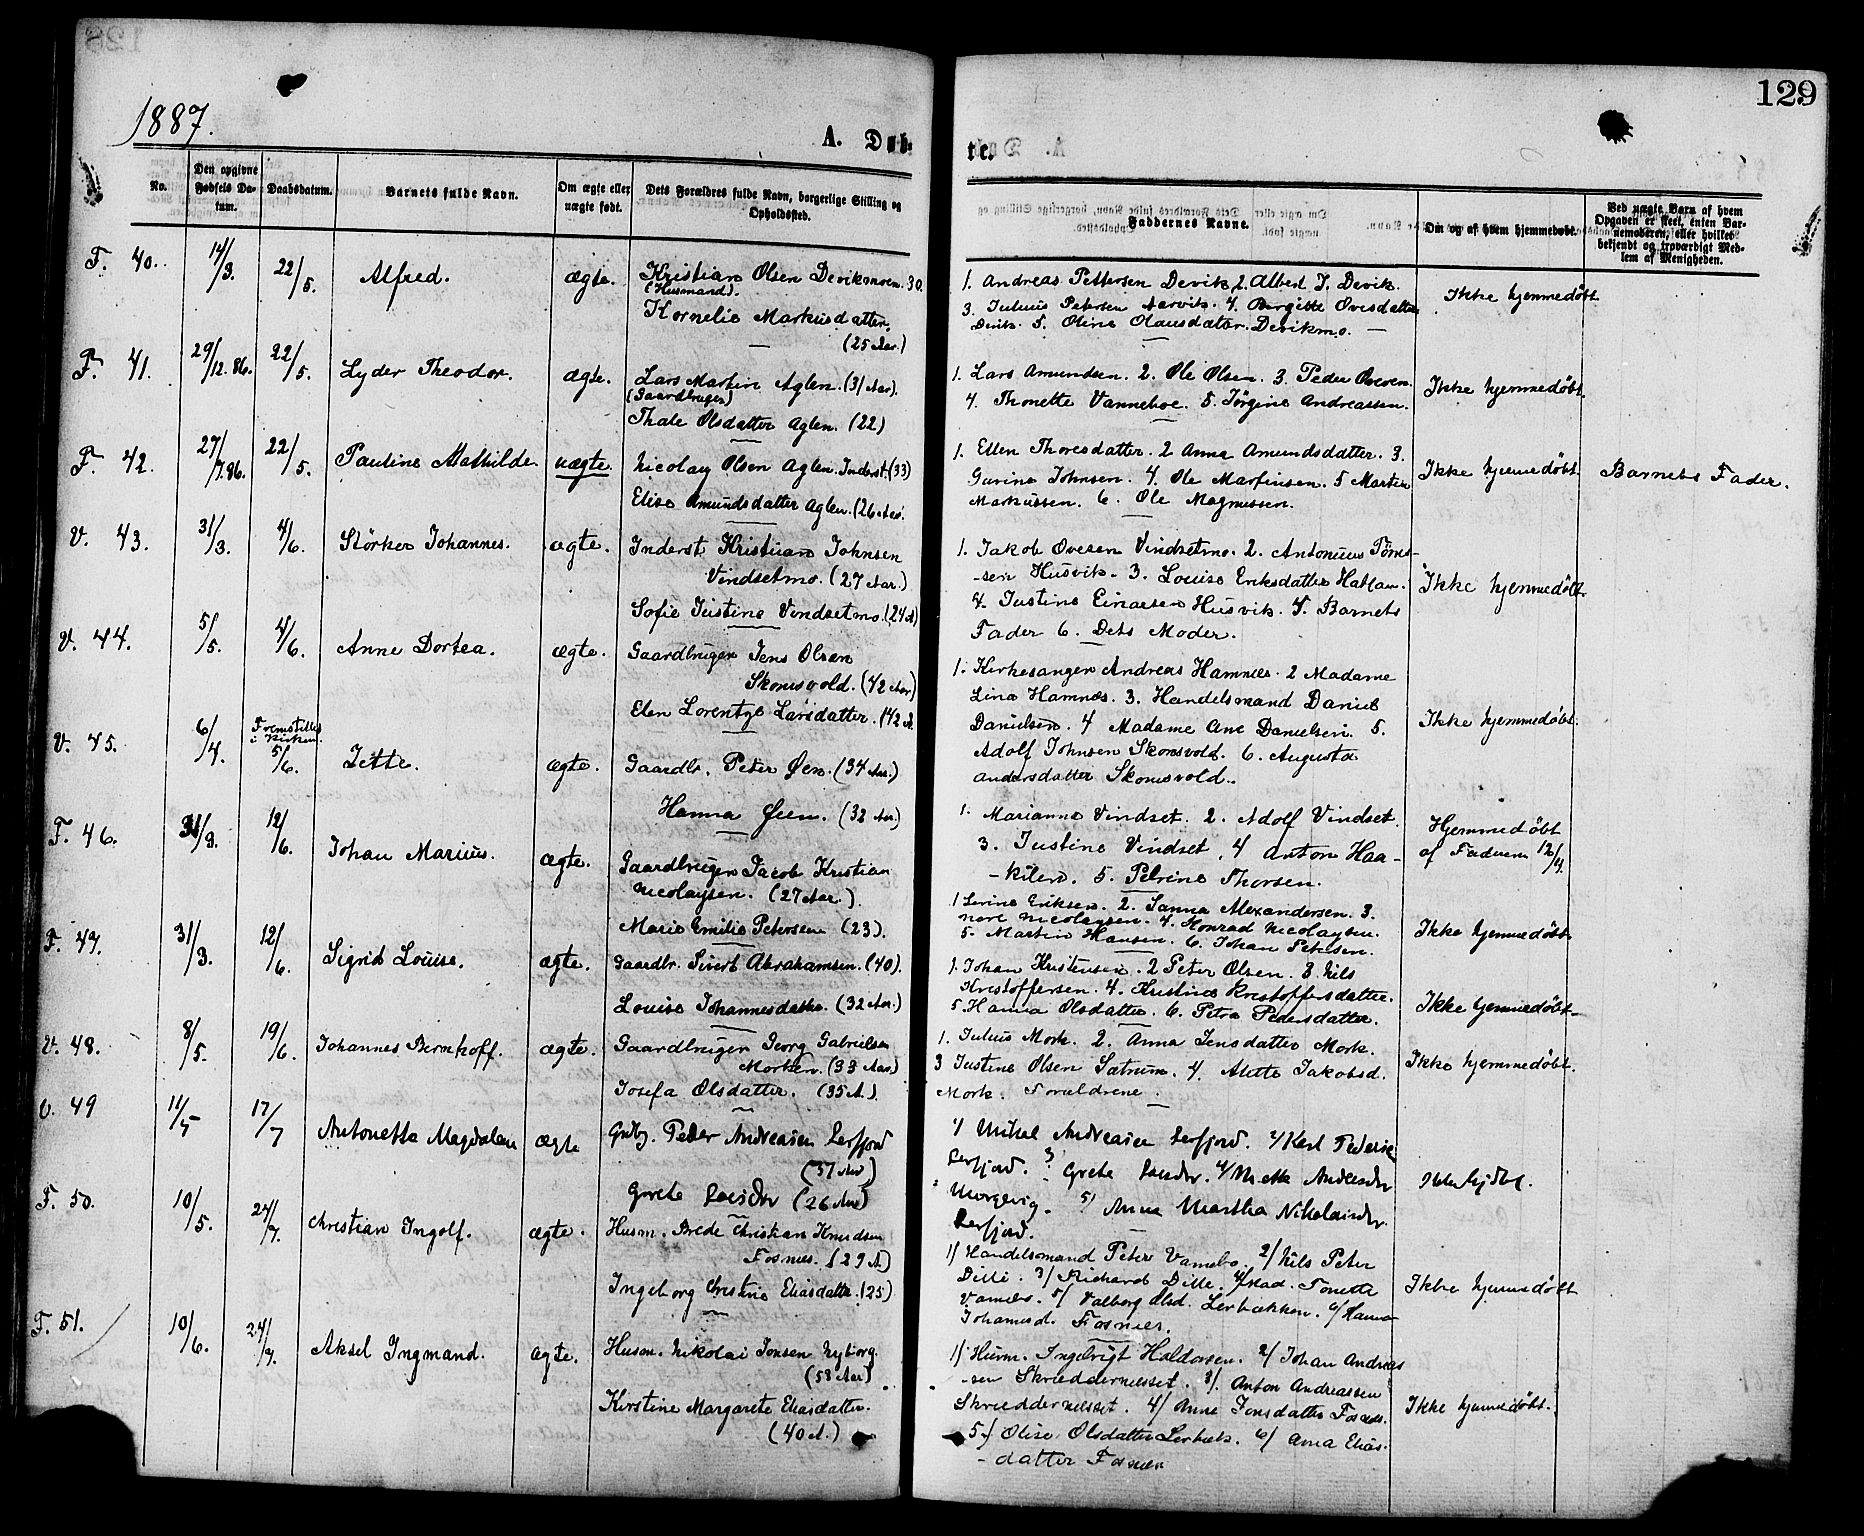 129
1887.
A. Døbte.
No.
Den opgivne Fødsels Datum.
Daabsdatum.
Barnets fulde Navn.
Om ægte eller uægte født.
Dets Forældres fulde Navn, borgerlige Stilling og Opholdssted.
Faddernes Navne.
Om og af hvem hjemmedøbt.
Ved uægte Barn af hvem Opgaven er skeet, enten Barnemoderen, eller hvilket bekjendt og troværdigt Medlem af Menigheden.
F. 40. 14/3. 22/5. Alfred. ægte. Kristian Olsen Devikmoen. 30.
(Husmand).
Kornelie Markusdatter.
(25 Aar.)
1. Andreas Pettersen Devik, 2. Albert J. Devik.
3. Julius Petersen Aarvik. 4. Bergitte Ovesdatter
Devik. 5. Oline Olausdatter Devikmo.
Ikke hjemmedøbt
F. 41. 29/12.86. 22/5. Lyder Theodor. ægte. Lars Martin Aglen. (31 Aar).
(Gaardbruger)
Thale Olsdatter Aglen. (22)
1. Lars Amundsen. 2. Ole Olsen. 3. Peder Ovesen.
4. Thonette Vanneboe. 5. Jørgine Andreassen.
Ikke hjemmedøbt.
F. 42. 27/7.86. 22/5. Pauline Mathilde uægte. Nicolay Olsen Aglen. Inderst. (33)
Elise Amundsdatter Aglen. (26 Aar.
1. Ellen Thoresdatter. 2 Anna Amundsdatter. 3.
Gurine Johnsen. 4. Ole Marfinsen. 5 Marten
Markussen. 6. Ole Magnussen.
Ikke hjemmedøbt. Barnets Fader.
V. 43. 31/3. 4/6. Størker Johannes. ægte. Inderst Kristian Johnsen
Vindsetmo. (27 Aar.)
Sofie Justine Vindsetmo. (24 A)
1. Jakob Ovesen Vindsetmo. 2. Antonius
-sen Husvik. 3. Louise Eriksdatter
4. Justine Einarsen Husvik. 5. Barnets
Fader 6. Dets Moder.
Ikke hjemmedøbt.
V. 44. 5/5. 4/6. Anne Dortea. ægte. Gaardbruger Jens Olsen
Skomsvold. (42 Aar)
Elen Lorentze Larsdatter. (42 A.
1. Kirkesanger Andreas Hamnes. 2 Madame
Lina Hamnes. 3. Handelsmand Daniel
Danielsen. 4 Madame Ane Danielsen. 5.
Adolf Johnsen Skomsvold. 6. Augusta
Andersdatter Skomsvold.
Ikke hjemmedøbt.
V. 45. 6/4. Fremstillet
i Kirken
5/6. Jette. ægte. Gaardbr. Peter Øen. (34 Aar.)
Hanna Øen. (32 Aar.)
1. Marianne Vindset. 2. Adolf Vindset.
3. Justine Vindset. 4 Anton Haa-
-kilen. 5. Petrine Thorsen.
Hjemmedøbt
af Faderen 12/4.
F. 46. 31/3. 12/6. Johan Marius. ægte. Gaardbruger Jacob Kristian
Nicolaysen. (27 Aar.).
Marie Emilie Petersen (23).
1 Serine Eriksen. 2. Sanna Alexandersen. 3.
Nore Nicolaysen. 4. Konrad Nicolaysen.
5. Martin Hansen. 6. Johan Petersen.
Ikke hjemmedøbt.
F. 47. 31/3. 12/6. Sigrid Louise. ægte. Gaardbr. Sivert Abrahamsen. (40).
Louise Johannesdatter. (32 Aar.)
1. Johan Kristensen. 2 Peter Olsen. 3. Nils
Kristoffersen. 4. Kristine Kristoffersdatter.
5. Hanna Olsdatter. 6. Petra Pedersdatter.
Ikke hjemmedøbt.
V. 48. 8/5. 19/6. Johannes Bernhoff. ægte. Gaardbruger Georg Gabrielsen
Morken. (33 Aar)
Josefa Olsdatter. (35 A.)
1. Julius Mork. 2. Anna Jensdatter Mork.
3 Justine Olsen Sætrum. 4. Alette Jakobsd.
Mork. Forældrene.
Ikke hjemmedøbt.
V. 49 11/5 17/7 Antonette Magdalen ægte Grdbg. Peder Andreasen Lerfjord
(37 Aar)
Grete (26 Aar)
1/ Mikal Andreasen Lerfjord. 2/ Karl Pedersen
Lerfjord. 3 Grete 4/ Mette
5/ Anna Martha Nikolaisdr.
Lerfjord.
F. 50. 10/5. 24/7. Christian Ingolf. ægte. Husm. Brede Christian Knudsen
Fosnes. (29 A.)
Ingeborg Cristine Eliasdatter. (25)
1/ Handelsmand Peter Vannebo. 2/ Nils Peter
Dille. 3/ Richard Dille. 4/ Mad. Tonette
Vannebo. 5/ Valborg Olsd. Lerbækken. 6/ Hanna
Johannesd. Fosnes.
Ikke hjemmedøbt
F. 51. 10/6. 24/7. Aksel Ingmand. ægte. Husm. Nikolai Jonsen Nyborg.
(53 Aar)
Kirstine Margarete Eliasdatter.
(40 A.)
1/ Husm. Ingebrigt Haldorsen. 2/ Johan Andreas
-sen Skræddernesset. 3/. Anton Andreassen
Skræddernesset. 4/ Anne Jonsdatter Fosnes.
5/ Olise Olsdatter Lerbæk. 6/ Anna Elias-
-datter Fosnes
Ikke hjemmedøbt.